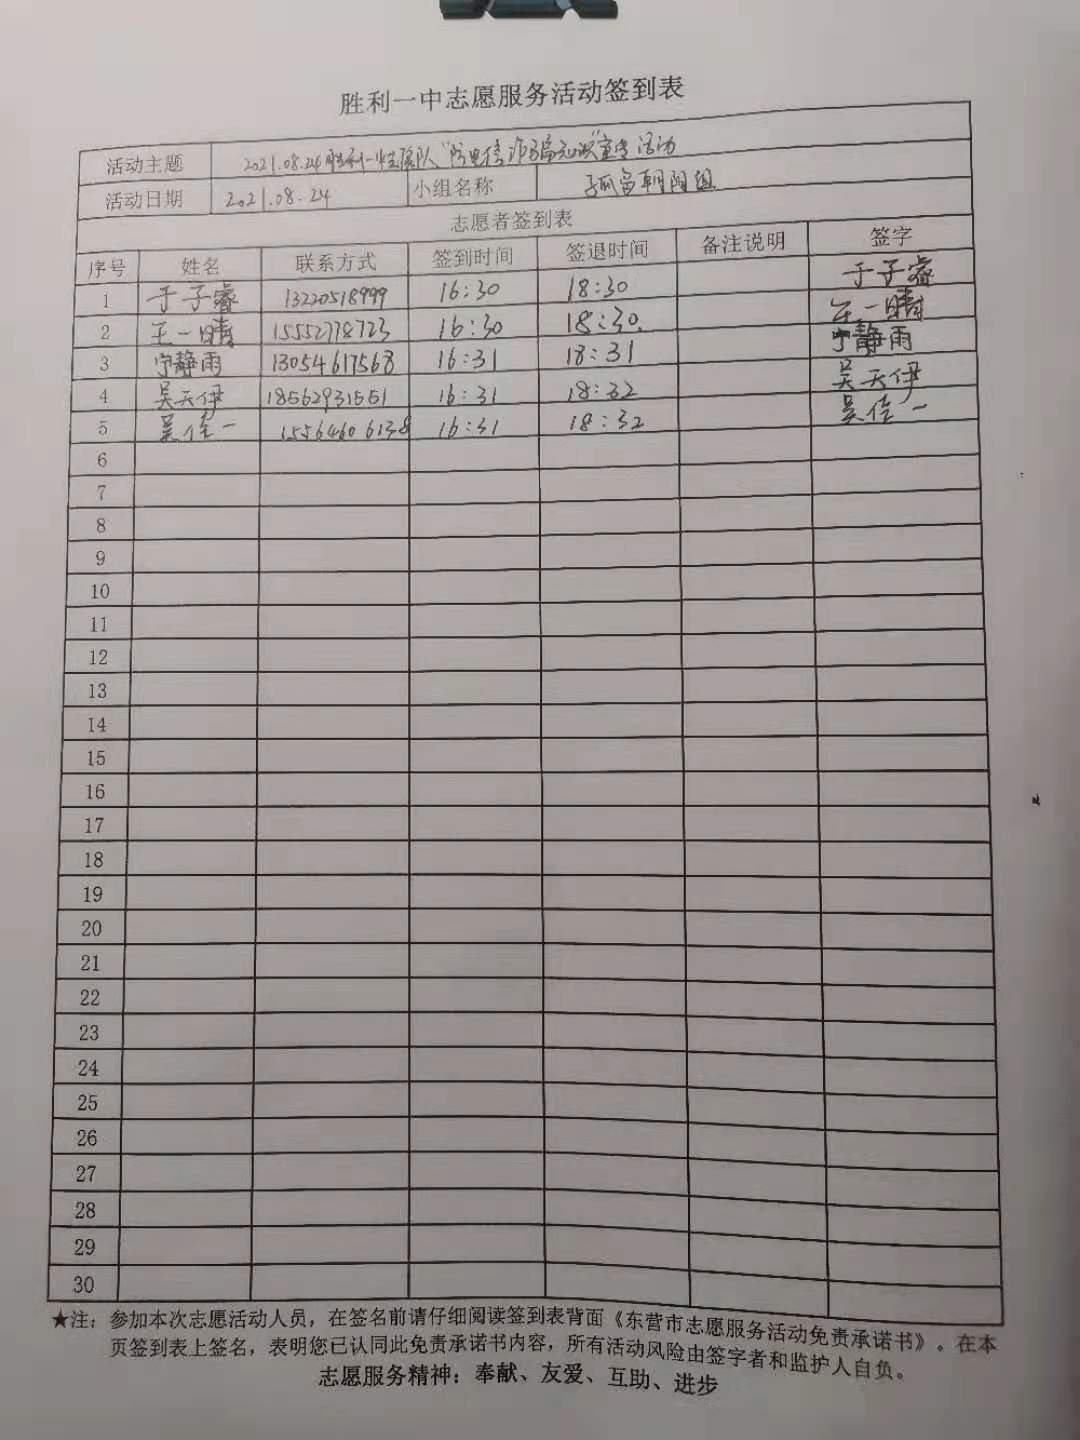 胜利一中志愿服务活动签到表
活动主题 2021.08.24胜利一中志愿队"防电信诈骗知识"宣传活动
活动日期 2021.08.24 小组名称 孤岛朝阳组
志愿者签到表
序号 姓名 联系方式 签到时间 签退时间 备注说明 签字
1 于子睿 13220518999 16:30 18:30 于子睿
2 王一晴 15552778723 16:30 18:30. 王一晴
3 宁静雨 13054617568 16:31 18:31 宁静雨
4 吴天伊 18562931551 16:31 18:32 吴天伊
5 吴佳一 15564606138 16:31 18:32 吴佳一
6
7
8
9
10
11
12
13
14
15
16
17
18
19
20
21
22
23
24
25
26
27
28
29
30
★注：参加本次志愿活动人员，在签名前请仔细阅读签到表背面《东营市志愿服务活动免责承诺书》。在本
页签到表上签名，表明您已认同此免责承诺书内容，所有活动风险由签字者和监护人自负。
志愿服务精神：奉献、友爱、互助、进步